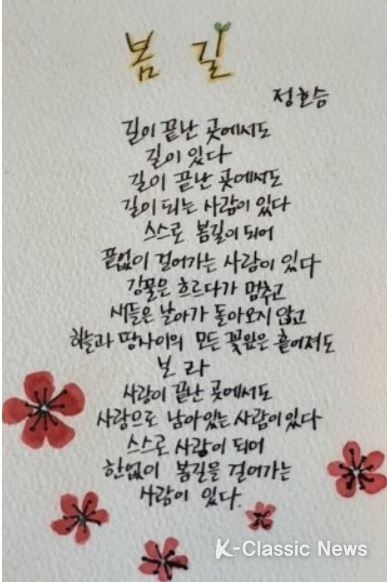 봄 길
정호승
길이 끝난 곳에서도
길이 있다
길이 끝난 곳에서도
길이 되는 사람이 있다
스스로 봄길이 되어
끝없이 걸어가는 사람이 있다
강물은 흐르다가 멈추고
새들은 날아가 돌아오지 않고
하늘과 땅사이의 모든 꽃잎은 흩어져도
보라
사랑이 끝난 곳에서도
사랑으로 남아있는 사람이 있다
스스로 사랑이 되어
한없이 봄길을 걸어가는
사람이 있다.
K-Classic News